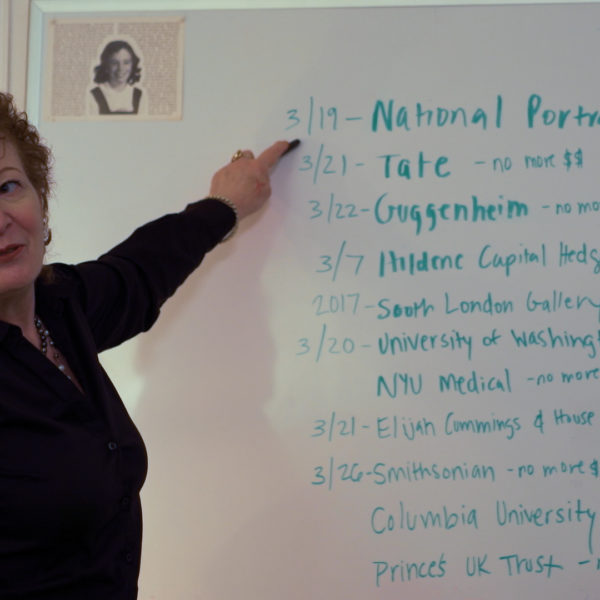 3/19 - National Portra
3/21 - Tate - no more $$
3/22 - Guggenheim - no mo
3/7 Hildene Capital Hedg
2017 - South London Gallery
3/20 - University of Washingt
NYU Medical - no more
3/21 - Elijah Cummings & House
3/26 - Smithsonian - no more $
Columbia University
Prince's UK Trust -